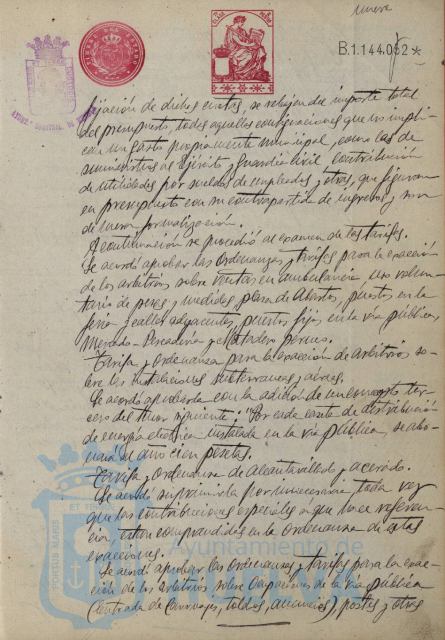 nueve
B.1.144.082 *
TIMBRE DEL ESTADO
fijación de dichas cuotas, se rebajen del importe total
del presupuesto, todas aquellas consignaciones que no impli-
can un gasto propiamente municipal, como las de
suministros al Ejército y Guardia Civil contribución
de utilidades por sueldos de empleados y otras, que figuran
en presupuesto con su contrapartida de ingresos, y son
de mera formalización.
A continuación se procedió al examen de las tarifas.
Se acordó aprobar las Ordenanzas y tarifas para la exacción
de los arbitrios sobre ventas en ambulancia uso volun-
tario de pesas y medidas, plaza de Abastos, puestos en la
feria y calles adyacentes, puestos fijos en la vía pública,
Mercado-Pescadería y Matadero
Tarifa y Ordenanza para la exacción de arbitrio so-
bre las instalaciones subterráneas y aéreas.
Se acordó aprobarla con la adición de un concepto ter-
cero del tenor siguiente: "Por cada caseta de distribución
de energía eléctrica instalada en la vía pública se abo-
nará al año cien pesetas.
Tarifa y ordenanza de Alcantarillado y acerado.
Se acordó suprimirla por innecesaria toda vez
que las contribuciones especiales a que hacen referen-
cia, están comprendidas en la Ordenanza de estas
exacciones.
Se acordó aprobar las Ordenanzas y tarifas para la exac-
ción de los arbitrios sobre Ocupaciones de la vía pública
(entrada de carruajes, toldos, anuncios), postes y otros
PORTUS MARIS ET TERRAE
Ayuntamiento de